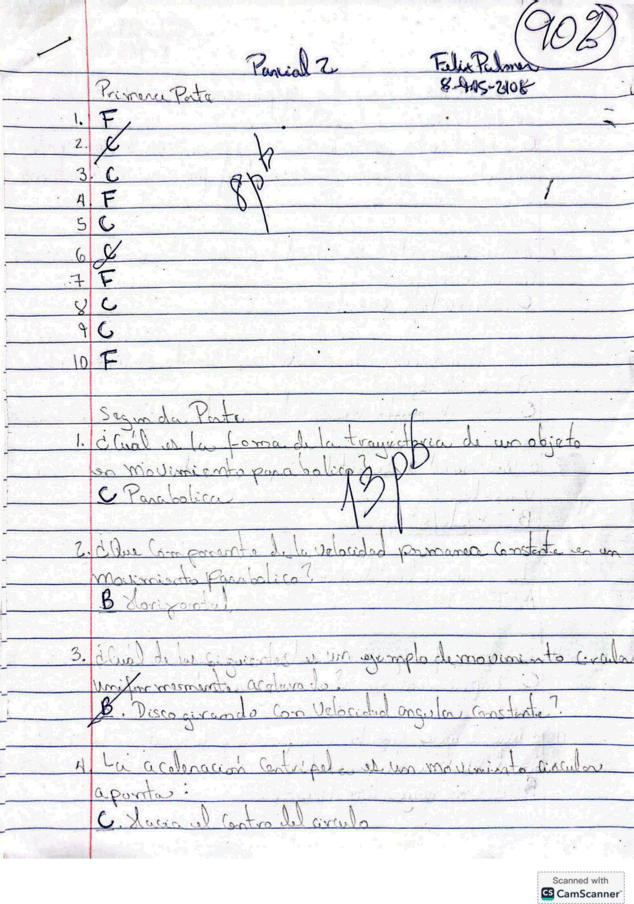 902
Parcial 2
Felix Palmer
Primera Parte
1. F
2. C
3. C
8pb
4 F
5 C
6 C
7 F
8 C
9 C
10 F
Segunda Parte
1. ¿Cuál es la forma de la trayectoria de un objeto
en movimiento parabolico?
13pb
C Parabolica
2. ¿Que Componente de la velocidad permanece constante en un
movimiento Parabolico?
B Horizontal
3. ¿Cual de los siguientes es un ejemplo de movimiento circular
uniformemente acelerado?
B. Disco girando con velocidad angular constante?
4 La aceleración Centripeta es un movimiento circular
apunta:
C. Hacia el Centro del circulo
Scanned with
CS CamScanner